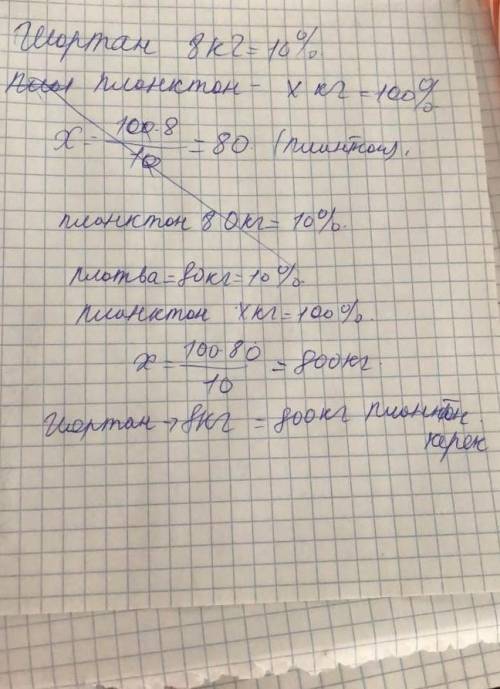 Шортан 8кг=10%
планктон - х кг=100%
х= 100·8 / 10 =80 (плинтон).
планктон 80кг=10%.
плотва=80кг=10%.
планктон хкг=100%.
х= 100·80 / 10 =800кг.
Шортан→8кг =800кг планктон
керек